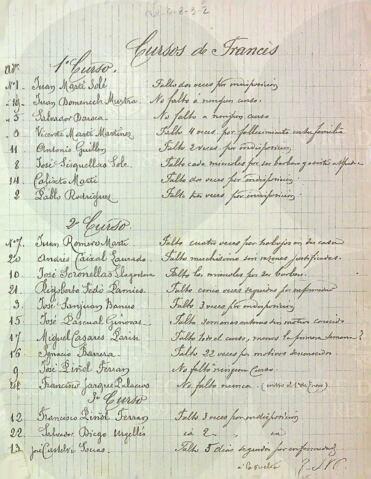 Cursos de Francés
1º Curso.
Nº 1 Juan Martí Solé Falto dos veces por indisposición
19 Juan Domenech Mustra No falto á ningun curso.
5 Salvador Basca No falto a ninguno curso
Vicente Martí Martínez Falto 4 veces. por fallecimiento familia
11 Antonio Guillen Falto 2 veces. por indisposición
8 José Seguellas Sole Falto cada miercoles por
14 Calixto Martí Falto dos veces por indisposición
2 Pablo Rodriguez Falto tres veces por indisposición.
2º Curso
Nº 7. Juan Romero Martí Falto cuatro veces por trabajos en su casa
20 Andres Caixal Laurado Falto muchisimo sin razones justificadas.
10 José Foronellas Falto los miercoles por
21 Rigoberto Fedó Pamies Falto cinco veces seguidas por enfermedad
3 José Sanjuan Banus Falto 3 veces por indisposición
15 José Pascual Ginovas Falto semanas enteras sin motivo conocido
17 Miguel Casares Falto todo el curso, menos la primera semana?
16 Ignacio Barrera Falto 22 veces por motivos desconocidos
9 José Piñol Ferran No falto ninguno Curso
Francisco Jarque Palacios No falto nunca
3º Curso
12 Francisco Piñol Ferran Falto 3 veces por indisposición
22. Salvador Diego Urgellés id 2 id
13 José Castelví Socias. Falto 5 dias seguidos por enfermedad